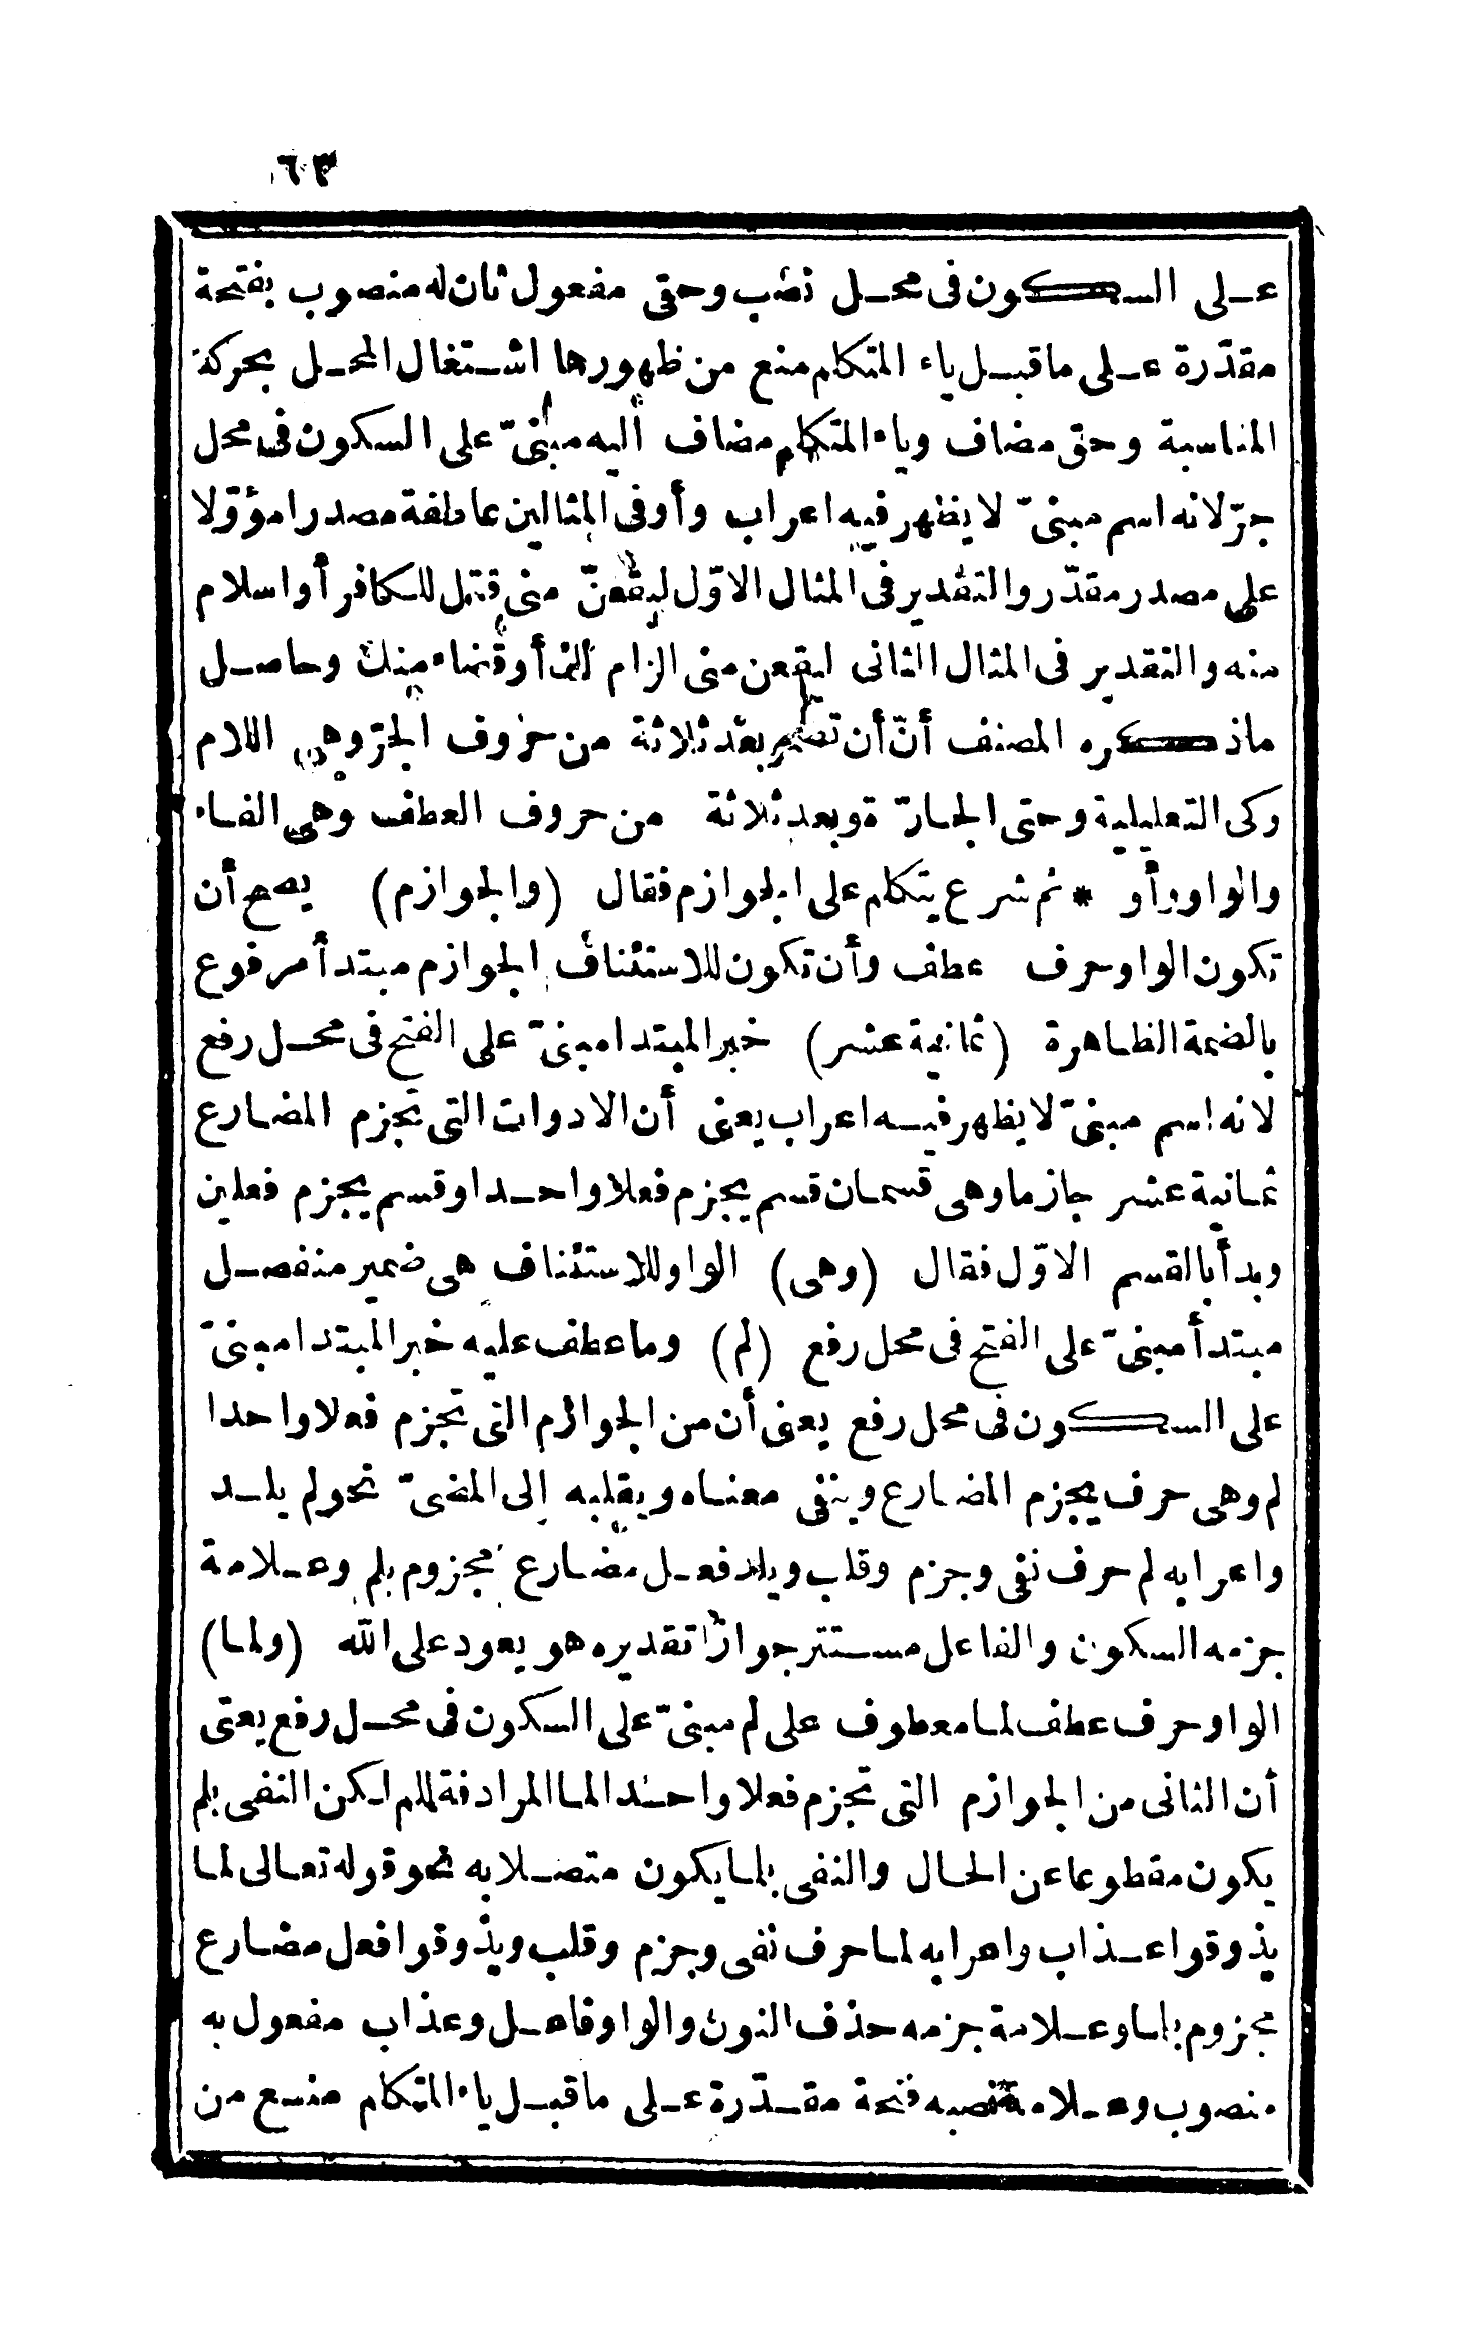 ٦٣
على السكون فى محل نصب وحقى مفعول ثان له منصوب بفتحة
مقدّرة على ما قبل ياء المتكلم منع من ظهورها اشتغال المحل بحركة
المناسبة وحق مضاف وياء المتكلم مضاف اليه مبنىّ على السكون فى محل
جرّ لانه اسم مبنىّ لا يظهر فيه اعراب وأو فى المثالين عاطفة مصدرا مؤوّلا
على مصدر مقدّر والتقدير فى المثال الاوّل ليقعنّ منى قتل للكافر أو اسلام
منه والتقدير فى المثال الثانى ليقعن منى الزام لك أو قضاء منك وحاصل
ماذكره المصنف أنّ أن تضمر بعد ثلاثة من حروف الجرّ وهى اللام
وكى التعليلية وحتى الجارّة وبعد ثلاثة من حروف العطف وهى الفاء
والواو وأو * ثم شرع يتكلم على الجوازم فقال (والجوازم) يصح أن
تكون الواو حرف عطف وأن تكون للاستئناف الجوازم مبتدأ مرفوع
بالضمة الظاهرة (ثمانية عشر) خبر المبتدا مبنىّ على الفتح فى محل رفع
لانه اسم مبنىّ لا يظهر فيه اعراب يعنى أن الادوات التى تجزم المضارع
ثمانية عشر جازما وهى قسمان قسم يجزم فعلا واحدا وقسم يجزم فعلين
وبدأ بالقسم الاوّل فقال (وهى) الواو للاستئناف هى ضمير منفصل
مبتدأ مبنىّ على الفتح فى محل رفع (لم) وما عطف عليه خبر المبتدا مبنىّ
على السكون فى محل رفع يعنى أن من الجوازم التى تجزم فعلا واحدا
لم وهى حرف يجزم المضارع وينفى معناه ويقلبه إلى المضىّ نحو لم يلد
واعرابه لم حرف نفى وجزم وقلب ويلد فعل مضارع مجزوم بلم وعلامة
جزمه السكون والفاعل مستتر جوازا تقديره هو يعود على الله (ولما)
الواو حرف عطف لما معطوف على لم مبنىّ على السكون فى محل رفع يعنى
أن الثانى من الجوازم التى تجزم فعلا واحدا لما المرادفة للم لكن النفى بلم
يكون مقطوعا عن الحال والنفى بلما يكون متصلا به نحو قوله تعالى لما
يذوقوا عذاب واعرابه لما حرف نفى وجزم وقلب ويذوقوا فعل مضارع
مجزوم بلما وعلامة جزمه حذف النون والواو فاعل وعذاب مفعول به
منصوب وعلامة نصبه فتحة مقدّرة على ما قبل ياء المتكلم منع من